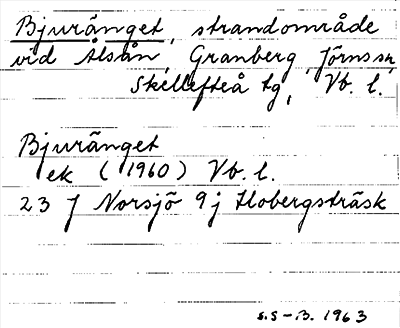 Bjuränget, strandområde
vid Ålsån, Granberg, Jörns sn,
Skellefteå tg, Vb. l.
Bjuränget
ek (1960) Vb. l.
23 J Norsjö 9j Hobergsträsk
S.S-B. 1963